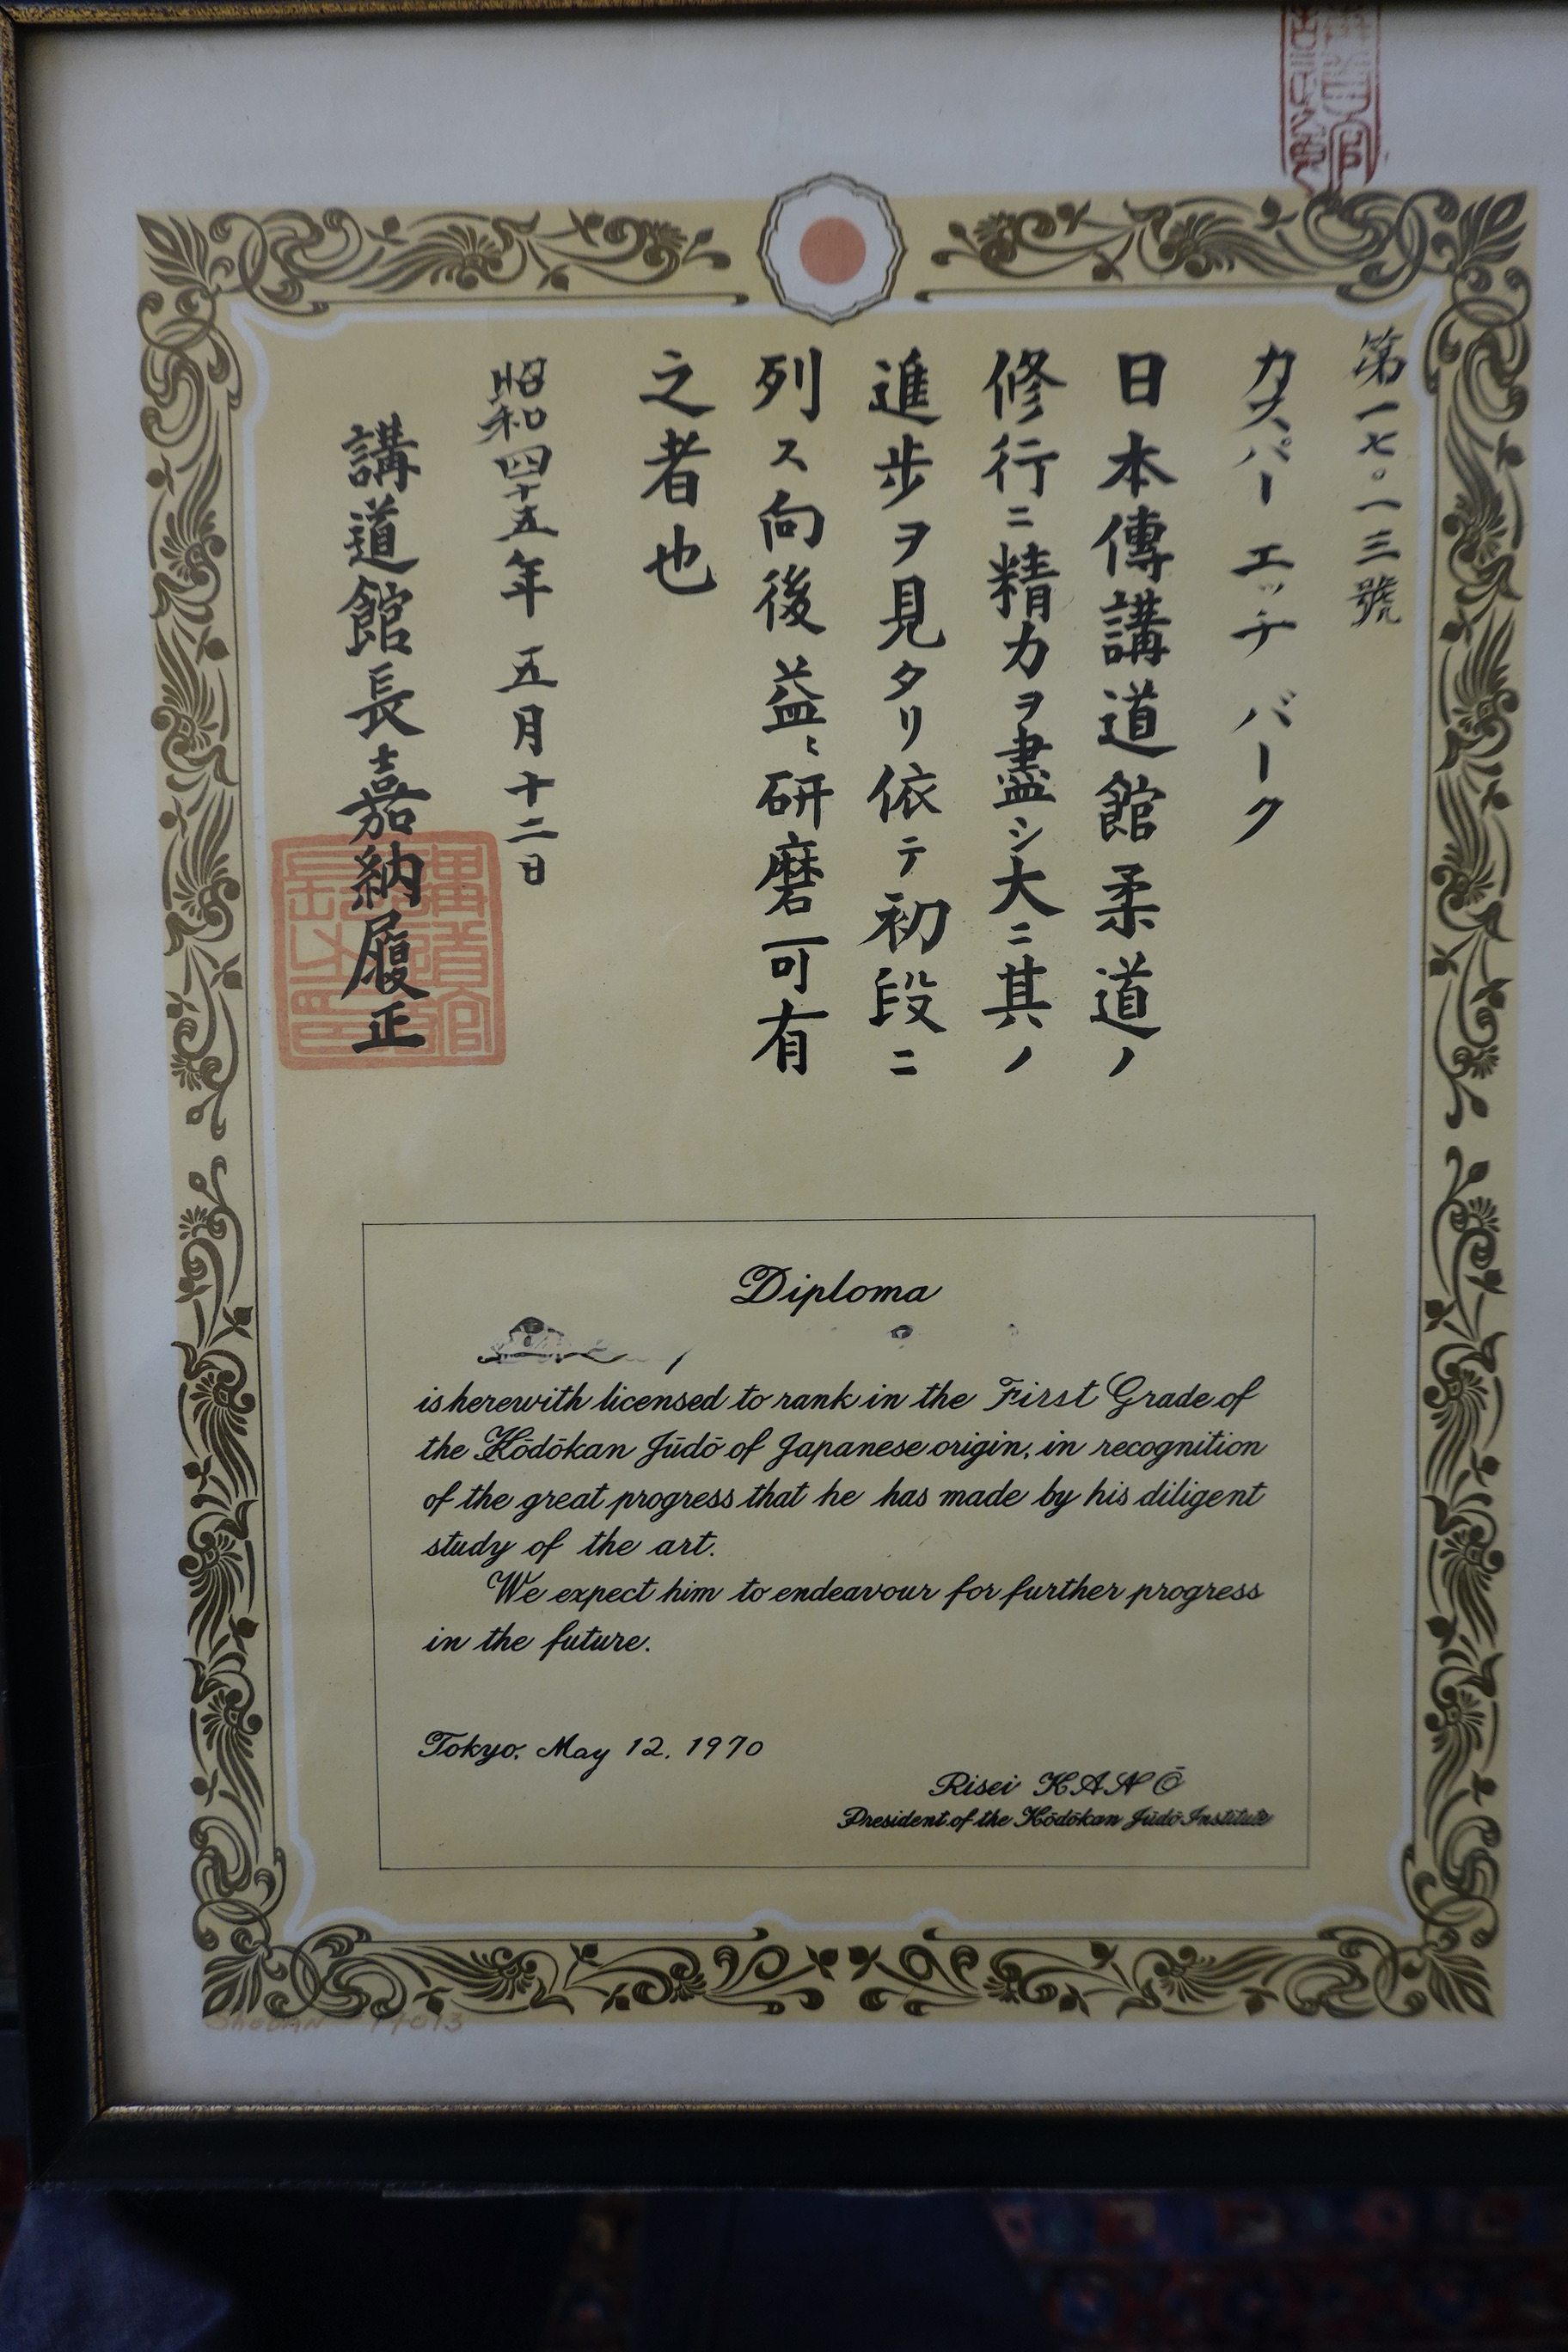 第一七〇一三號
カスパー エッチ バーク
日本傳講道館柔道ノ
修行ニ精力ヲ盡シ大ニ其ノ
進步ヲ見タリ依テ初段ニ
列ス向後益〻研磨可有
之者也
昭和四十五年 五月十二日
講道館長嘉納履正
Diploma
is herewith licensed to rank in the First Grade of
the Kōdōkan Jūdō of Japanese origin, in recognition
of the great progress that he has made by his diligent
study of the art.
We expect him to endeavour for further progress
in the future.
Tokyo, May 12, 1970
Risei KANŌ
President of the Kōdōkan Jūdō Institute
SHODAN 17013